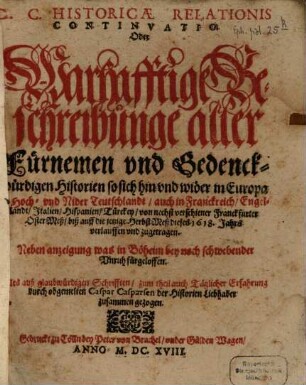 C. C. HISTORICÆ RELATIONIS
CONTINVATIO.
Oder
Warhafftige Be-
schreibunge aller
Fürnemen vnd Gedenck-
würdigen Historien so sich hin vnd wider in Europa
Hoch- vnd Nider Teutschlandt / auch in Franckreich / Engel-
landt / Italien / Hispanien / Türckey / von nechst verschiener Franckfurter
Oster Meß / biß auff die jetzige Herbst Meß dieses 1618. Jahrs
verlauffen vnd zugetragen.
Neben anzeigung was in Böheim bey noch schwebender
Vnruh fürgeloffen.
Alles auß glaubwürdigen Schrifften / zum theil auch Täglicher Erfahrung
durch obgemelten Caspar Casparsen der Historien Liebhaber
zusammen gezogen.
Gedruckt zu Cölln bey Peter von Brachel / vnder Gülden Wagen /
ANNO M. DC. XVIII.